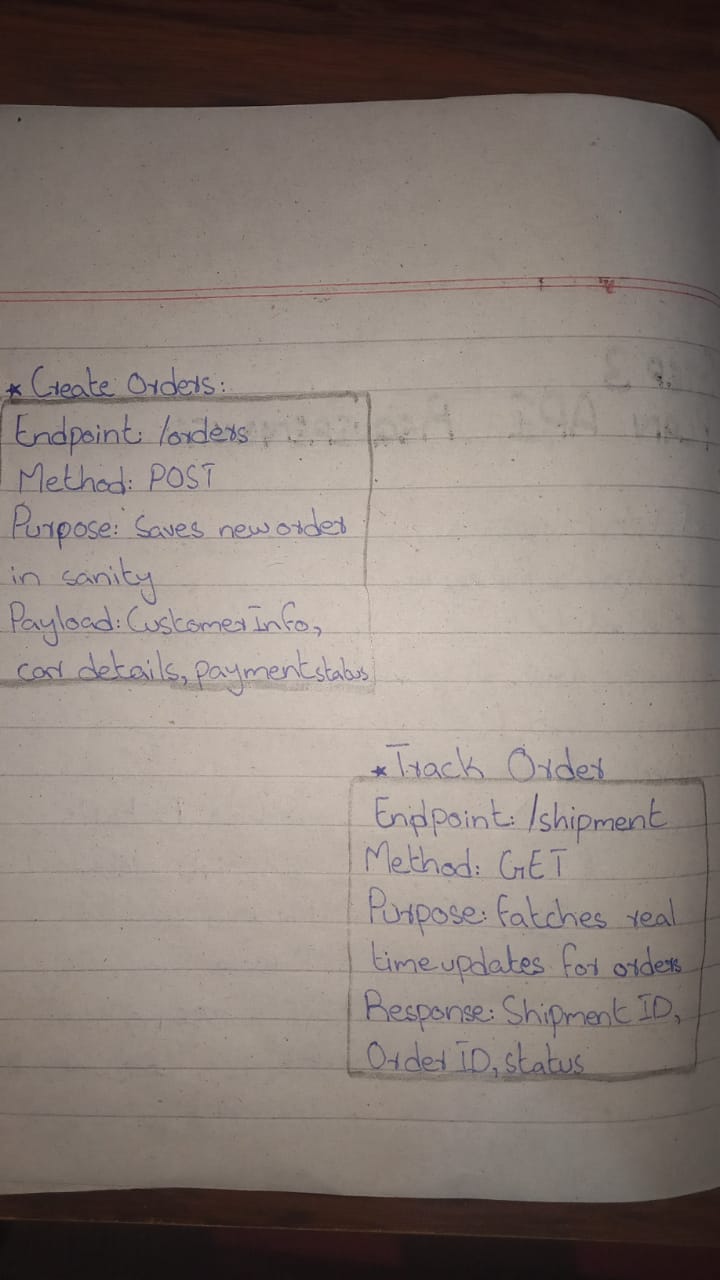 * Create Orders:
Endpoint: /orders
Method: POST
Purpose: Saves new order
in sanity
Payload: Customer Info,
cart details, payment status
* Track Order
Endpoint: /shipment
Method: GET
Purpose: fatches real
time updates for orders
Response: Shipment ID,
Order ID, status